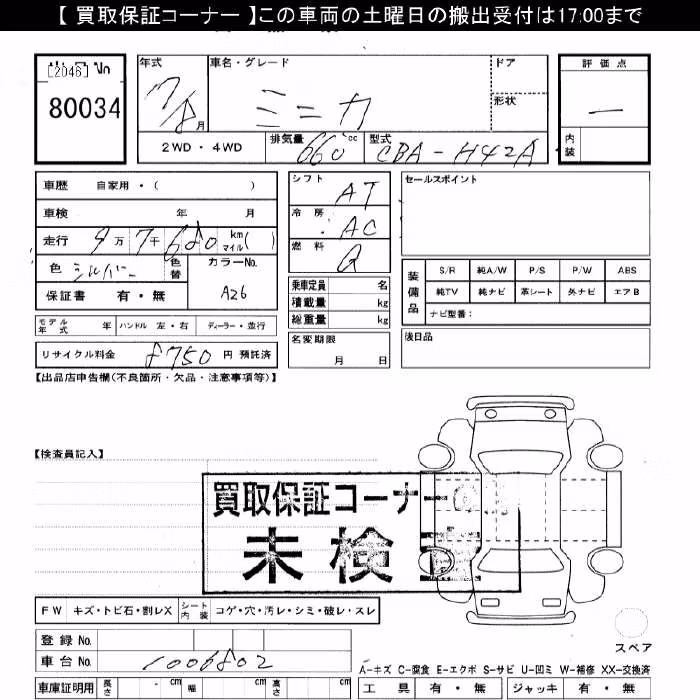 【 買取保証コーナー 】この車両の土曜日の搬出受付は17:00まで
[2046] No
80034
年式
17/8月
車名・グレード
ミニカ
ドア
形状
評価点
―
内装
2WD ・ 4WD
排気量
660 cc
型式
CBA-H42A
車歴 自家用・( )
車検 年 月
走行 9万 7千 680 km マイル ( )
色 シルバー 色替
カラーNo.
A26
保証書 有・無
シフト AT
冷房 AC
燃料 G
乗車定員 名
積載量 kg
総重量 kg
名変期限
月 日
セールスポイント
装備品
S/R 純A/W P/S P/W ABS
純TV 純ナビ 革シート 外ナビ エアB
ナビ型番:
後日品
モデル年式 年 ハンドル 左・右 ディーラー・並行
リサイクル料金 8750 円 預託済
【出品店申告欄(不良箇所・欠品・注意事項等)】
【検査員記入】
買取保証コーナー
未検
FW キズ・トビ石・割レX シート内装 コゲ・穴・汚レ・シミ・破レ・スレ
登録 No.
車台 No. 1006802
車庫証明用 長さ cm 幅 cm 高さ cm
スペア
A-キズ C-腐食 E-エクボ S-サビ U-凹ミ W-補修 XX-交換済
工具 有・無 ジャッキ 有・無